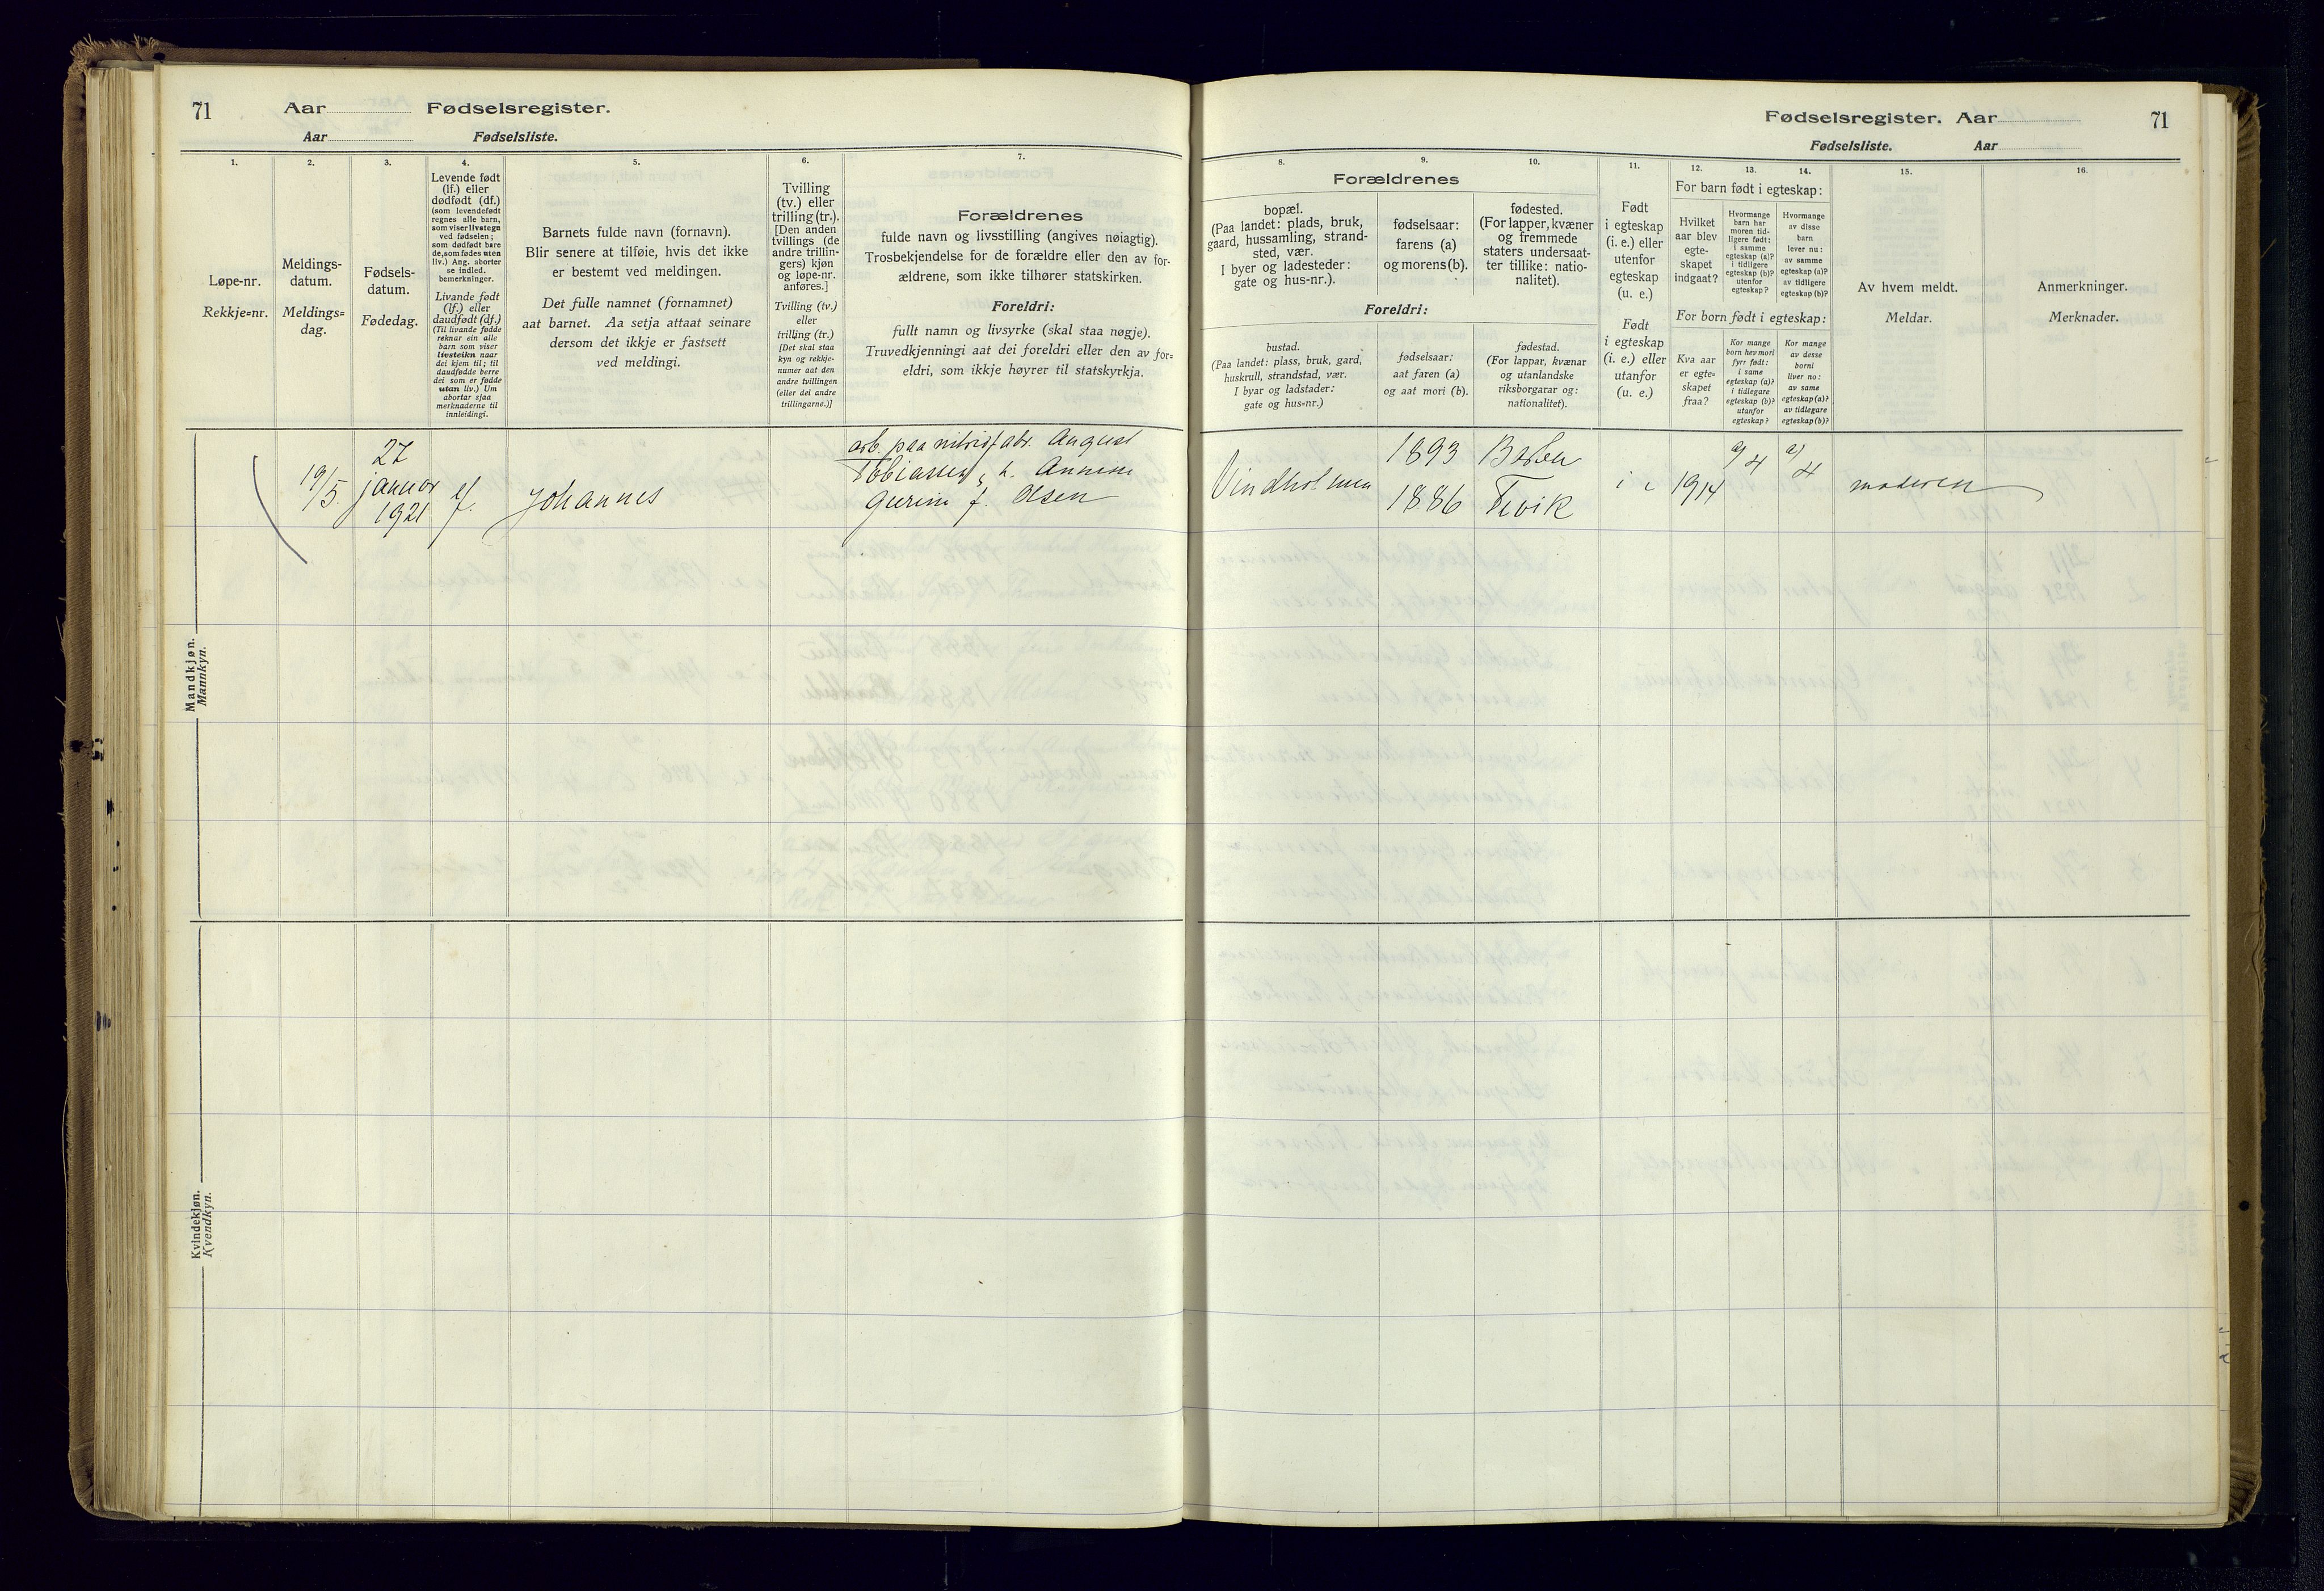 71 Aar Fødselsregister.
Aar Fødselsliste.
1. 2. 3. 4. 5. 6. 7.
Løpe-nr.
Rekkje=nr.
Meldings-
datum.
Meldings=
dag.
Fødsels-
datum.
Fødedag.
Levende født
(lf.) eller
dødfødt (df.)
(som levendefødt
regnes alle barn,
som viser livstegn
ved fødselen;
som dødfødt bare
de, som fødes uten
liv.) Ang. aborter
se indled.
bemerkninger.
Livande født
(lf.) eller
daudfødt (df.)
(Til livande fødde
reknar ein alle
barn som viser
livsteikn naar
dei kjem til; til
daudfødde berre
dei som er fødde
utan liv.) Um
abortar sjaa
merknaderne til
innleidingi.
Barnets fulde navn (fornavn).
Blir senere at tilføie, hvis det ikke
er bestemt ved meldingen.
Det fulle namnet (fornamnet)
aat barnet. Aa setja attaat seinare
dersom det ikkje er fastsett
ved meldingi.
Tvilling
(tv.) eller
trilling (tr.).
[Den anden
tvillings (de
andre trillin-
gers) kjøn
og løpe-nr.
anføres.]
Tvilling (tv.)
eller
trilling (tr.)
[Det skal staa
kyn og rekkje-
numer aat den
andre tvillingen
(eller dei andre
trillingarne.)]
Forældrenes
fulde navn og livsstilling (angives nøiagtig).
Trosbekjendelse for de forældre eller den av for-
ældrene, som ikke tilhører statskirken.
Foreldri:
fullt namn og livsyrke (skal staa nøgje).
Truvedkjenningi aat dei foreldri eller den av for=
eldri, som ikkje høyrer til statskyrkja.
Mandkjøn.
Mannkyn.
19/5.
27
januar
1921
Johannes
arb. paa nitridfabr. August
Tobiassen h.
Gurine f. Olsen
Kvindekjøn.
Kvendkyn.
Fødselsregister. Aar 71
Fødselsliste. Aar
8. 9. 10. 11. 12. 13. 14. 15. 16.
Forældrenes
bopæl.
(Paa landet: plads, bruk,
gaard, hussamling, strand-
sted, vær.
I byer og ladesteder:
gate og hus-nr.).
fødselsaar:
farens (a)
og morens (b).
fødested.
(For lapper, kvæner
og fremmede
staters undersaat-
ter tillike: natio-
nalitet).
Foreldri:
bustad.
(Paa landet: plass, bruk, gard,
huskrull, strandstad, vær.
I byar og ladstader:
gate og hus=nr.)
fødselsaar:
aat faren (a)
og aat mori (b).
fødestad.
(For lappar, kvænar
og utanlandske
riksborgarar og:
nationalitet).
Født
i egteskap
(i. e.) eller
utenfor
egteskap
(u. e.)
Født
i egteskap
(i. e.) eller
utanfor
egteskap
(u. e.)
For barn født i egteskap:
Hvilket
aar blev
egte-
skapet
indgaat?
Hvormange
barn har
moren tid-
ligere født:
i samme
egteskap (a)?
i tidligere
egteskap (b)?
utenfor
egteskap?
Hvormange
av disse
barn
lever nu:
av samme
egteskap (a)?
av tidligere
egteskap (b)?
For born født i egteskap:
Kva aar
er egte=
skapet
fraa?
Kor mange
born hev mori
fyrr født:
i same
egteskap (a)?
i tidlegare
egteskap (b)?
utanfor
egteskap?
Kor mange
av desse
borni
liver no:
av same
egteskap (a)?
av tidlegare
egteskap (b)?
Av hvem meldt.
Meldar.
Anmerkninger.
Merknader.
Vindholmen
1893
1886
Barbu
Fevik
i e
1914
a/ 4
a/ 4
moderen